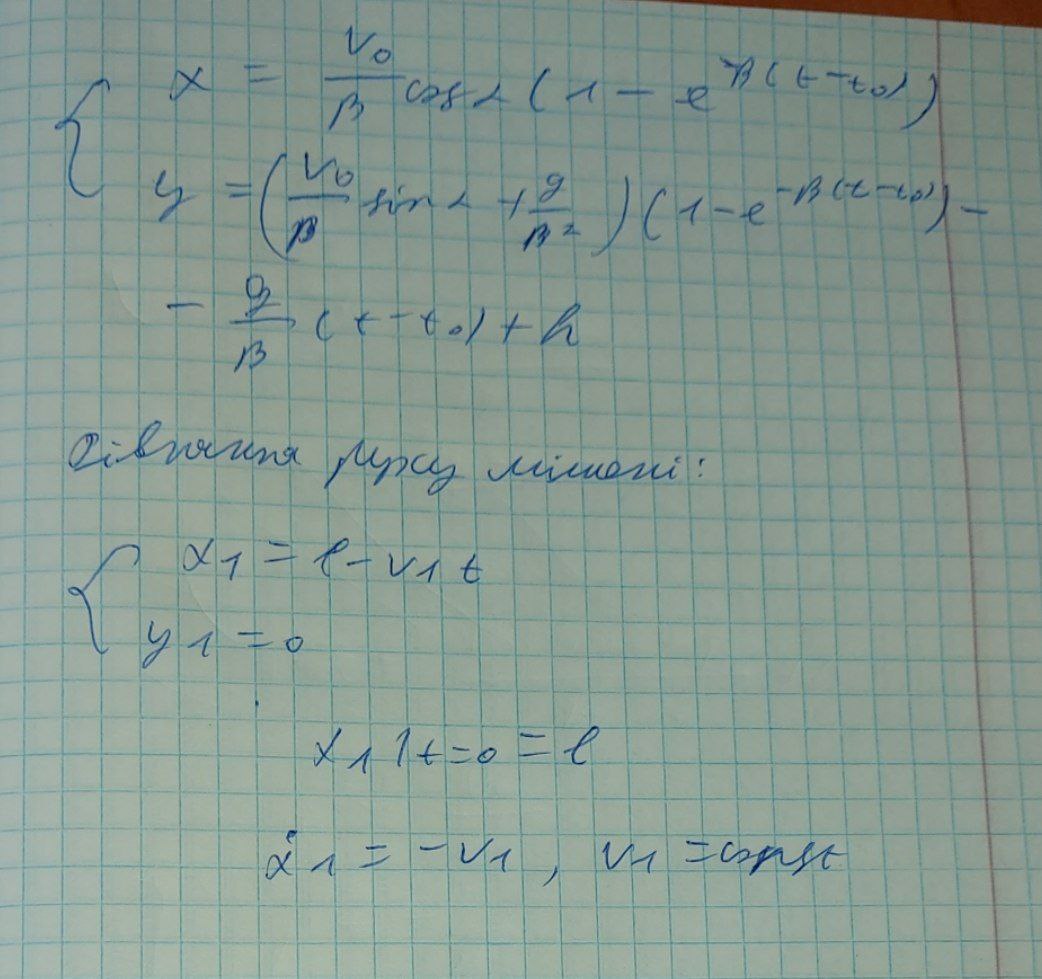 x = v₀/β cos α (1 - e^(-β(t-t₀)))
y = (v₀/β sin α + g/β²)(1 - e^(-β(t-t₀))) -
- g/β (t-t₀) + h
Рівняння руху мішені:
x₁ = l - v₁t
y₁ = 0
x₁|t=0 = l
ẋ₁ = -v₁, v₁ = const